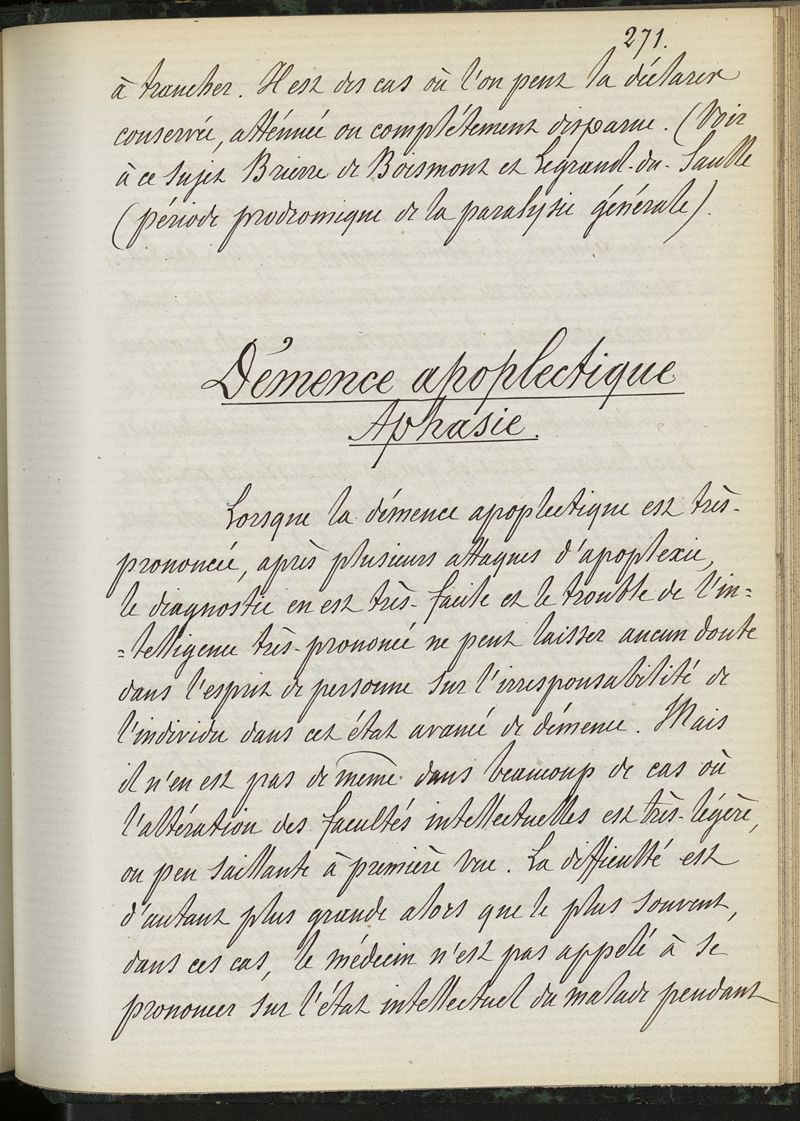 271.
à trancher. Il est des cas où l'on peut la déclarer
conservée, atténuée ou complétement disparue. (Voir
à ce sujet Brierre de Boismont et Legrand-du-Saulle
(période prodromique de la paralysie générale).
Démence apoplectique
Aphasie.
Lorsque la démence apoplectique est très-
prononcée, après plusieurs attaques d'apoplexie,
le diagnostic en est très-facile et le trouble de l'in=
=telligence très-prononcé ne peut laisser aucun doute
dans l'esprit de personne sur l'irresponsabilité de
l'individu dans cet état avancé de démence. Mais
il n'en est pas de même dans beaucoup de cas où
l'altération des facultés intellectuelles est très-légère,
ou peu saillante à première vue. La difficulté est
d'autant plus grande alors que le plus souvent,
dans ces cas, le médecin n'est pas appelé à se
prononcer sur l'état intellectuel du malade pendant